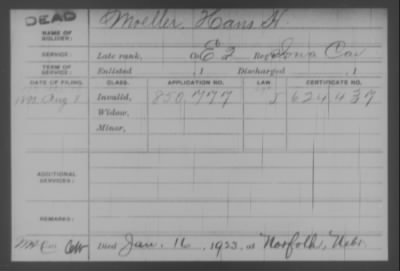 DEAD
Moeller, Hans H.
NAME OF
SOLDIER:
SERVICE:
Late rank, Co E 2 Reg't Iowa Cav
TERM OF
SERVICE:
Enlisted , 1 Discharged , 1
DATE OF FILING. CLASS. APPLICATION NO. LAW. CERTIFICATE NO.
Aug 8 Invalid, 850,777 J 624,437
Widow,
Minor,
ADDITIONAL
SERVICES:
REMARKS:
Died Jan. 16, 1923, at Norfolk, Nebr.